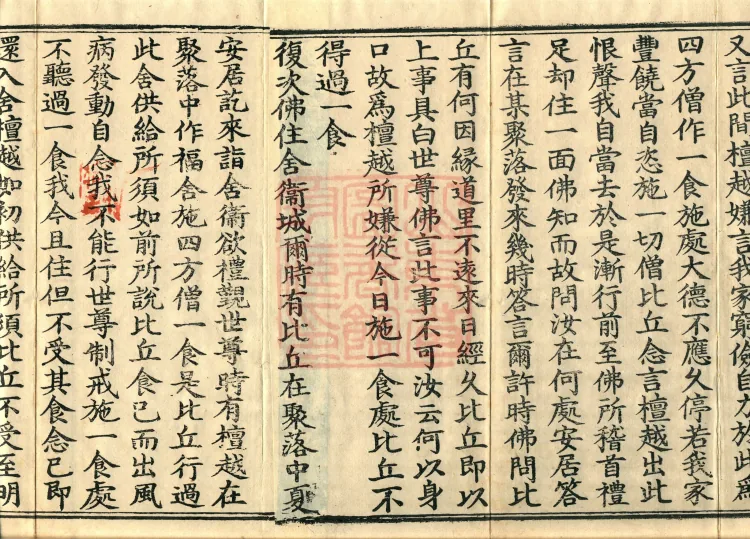 又言此間檀越嫌言我家窮儉自力於此為
四方僧作一食施處大德不應久停若我家
豐饒當自恣施一切僧比丘念言檀越出此
恨聲我自當去於是漸行前至佛所稽首禮
足却住一面佛知而故問汝在何處安居答
言在某聚落發來幾時答言爾許時佛問比
丘有何因緣道里不遠來日經久比丘即以
上事具白世尊佛言此事不可汝云何以身
口故為檀越所嫌從今日施一食處比丘不
得過一食
復次佛住舍衞城爾時有比丘在聚落中夏
安居訖來詣舍衞欲禮覲世尊時有檀越在
聚落中作福舍施四方僧一食是比丘行過
此舍供給所須如前所說比丘食已而出風
病發動自念我不能行世尊制戒施一食處
不聽過一食我今且住但不受其食念已即
還入舍檀越如初供給所須比丘不受至明